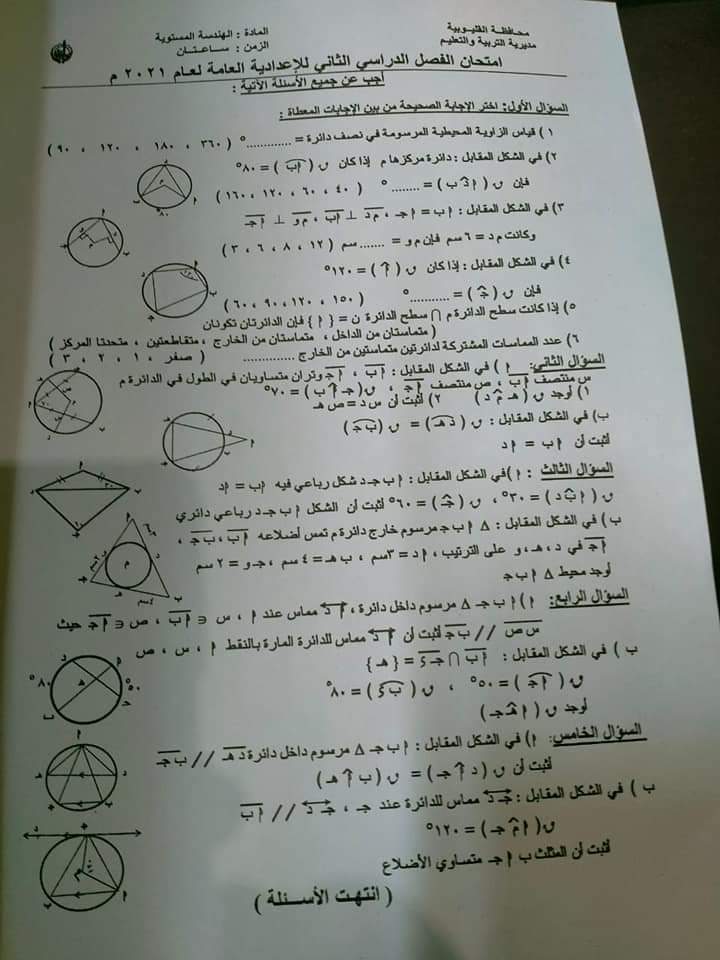 محافظة القليوبية
مديرية التربية والتعليم
المادة : الهندسة المستوية
الزمن : ساعتان
امتحان الفصل الدراسي الثاني للإعدادية العامة لعام ٢٠٢١ م
أجب عن جميع الأسئلة الآتية :
السؤال الأول: اختر الإجابة الصحيحة من بين الإجابات المعطاة :
١ ) قياس الزاوية المحيطية المرسومة في نصف دائرة = ............° ( ٣٦٠ ، ١٨٠ ، ١٢٠ ، ٩٠ )
٢) في الشكل المقابل : دائرة مركزها م إذا كان ق ( اب ) = ٨٠°
فإن ق ( ا د ب ) = ........ ° ( ٤٠ ، ٦٠ ، ١٢٠ ، ١٦٠ )
٣) في الشكل المقابل : اب = اجـ ، م د ⊥ اب ، م و ⊥ اجـ
وكانت م د = ٦ سم فإن م و = ....... سم ( ١٢ ، ٨ ، ٦ ، ٣ )
٤) في الشكل المقابل : إذا كان ق ( ا ) = ١٢٠°
فإن ق ( جـ ) = ...........° ( ١٥٠ ، ١٢٠ ، ٩٠ ، ٦٠ )
٥) إذا كانت سطح الدائرة م ∩ سطح الدائرة ن = { ا } فإن الدائرتان تكونان
( متماستان من الداخل ، متماستان من الخارج ، متقاطعتين ، متحدتا المركز )
٦) عدد المماسات المشتركة لدائرتين متماستين من الخارج .............. ( صفر ، ١ ، ٢ ، ٣ )
السؤال الثاني: ا ) في الشكل المقابل : اب ، اجـ وتران متساويان في الطول في الدائرة م
س منتصف اب ، ص منتصف اجـ ، ق ( جـ ا ب ) = ٧٠°
١) أوجد ق ( هـ م د ) ٢) أثبت أن س د = ص هـ
ب) في الشكل المقابل : ق ( د هـ ) = ق ( ب جـ )
أثبت أن اب = اد
السؤال الثالث : ا ) في الشكل المقابل : ا ب جـ د شكل رباعي فيه اب = اد
ق ( ا ب د ) = ٣٠° ، ق ( جـ ) = ٦٠° أثبت أن الشكل ا ب جـ د رباعي دائري
ب ) في الشكل المقابل : Δ ا ب جـ مرسوم خارج دائرة م تمس أضلاعه اب ، ب جـ ،
اجـ في د ، هـ ، و على الترتيب ، اد = ٣سم ، ب هـ = ٤ سم ، جـ و = ٢ سم
أوجد محيط Δ ا ب جـ
السؤال الرابع: ا ) ا ب جـ Δ مرسوم داخل دائرة ، اد مماس عند ا ، س ∈ اب ، ص ∈ اجـ حيث
س ص // ب جـ أثبت أن اد مماس للدائرة المارة بالنقط ا ، س ، ص
ب ) في الشكل المقابل : اب ∩ جـ د = { هـ }
ق ( اجـ ) = ٥٠° ، ق ( ب د ) = ٨٠°
أوجد ق ( ا هـ جـ )
السؤال الخامس: ا ) في الشكل المقابل : ا ب جـ Δ مرسوم داخل دائرة د هـ // ب جـ
أثبت أن ق ( د ا جـ ) = ق ( ب ا هـ )
ب ) في الشكل المقابل : جـ د مماس للدائرة عند جـ ، جـ د // اب
ق ( ا م جـ ) = ١٢٠°
أثبت أن المثلث ب ا جـ متساوي الأضلاع
( انتهت الأسئلة )